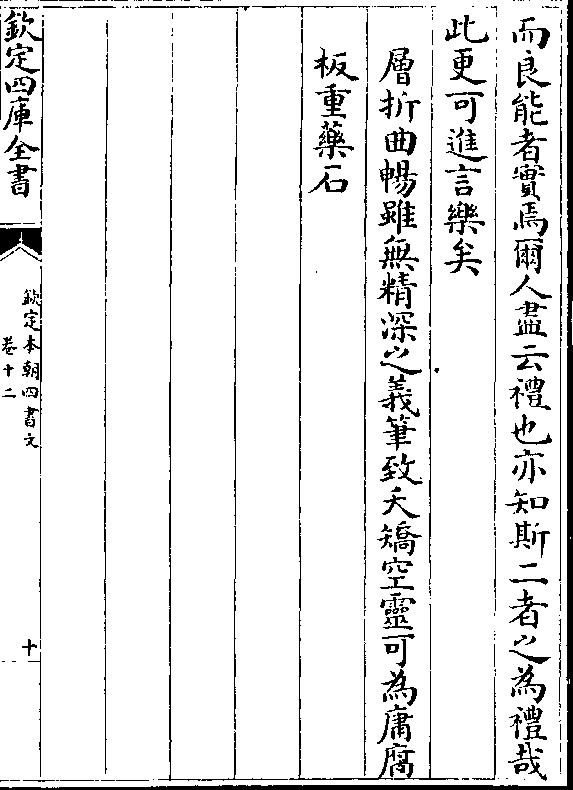 而良能者實焉爾人盡云禮也亦知斯二者之為禮哉
此更可進言樂矣
層折曲暢雖無精深之義筆致夭矯空靈可為庸腐
板重藥石
欽定四庫全書
欽定本朝四書文
卷十二
十